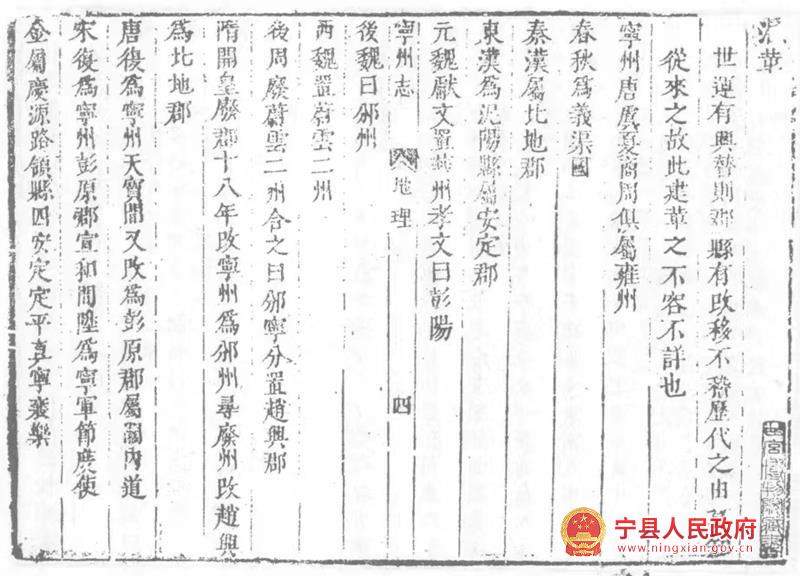 沿華
世運有興替則郡縣有改移不稽歷代之由
從來之故此建華之不容不詳也
寧州唐虞夏商周俱屬雍州
春秋為義渠國
秦漢屬北地郡
東漢為泥陽縣屬安定郡
元魏獻文置華州孝文曰彭陽
寧州志 地理 四
後魏曰邠州
西魏置蔚雲二州
後周廢蔚雲二州合之曰邠寧分置趙興郡
隋開皇廢郡十八年改寧州為邠州尋廢州改趙興
為北地郡
唐復為寧州天寶間又改為彭原郡屬關內道
宋復為寧州彭原郡宣和間陞為寧軍節度使
金屬慶源路領縣四安定定平真寧襄樂
宁县人民政府
www.ningxian.gov.cn